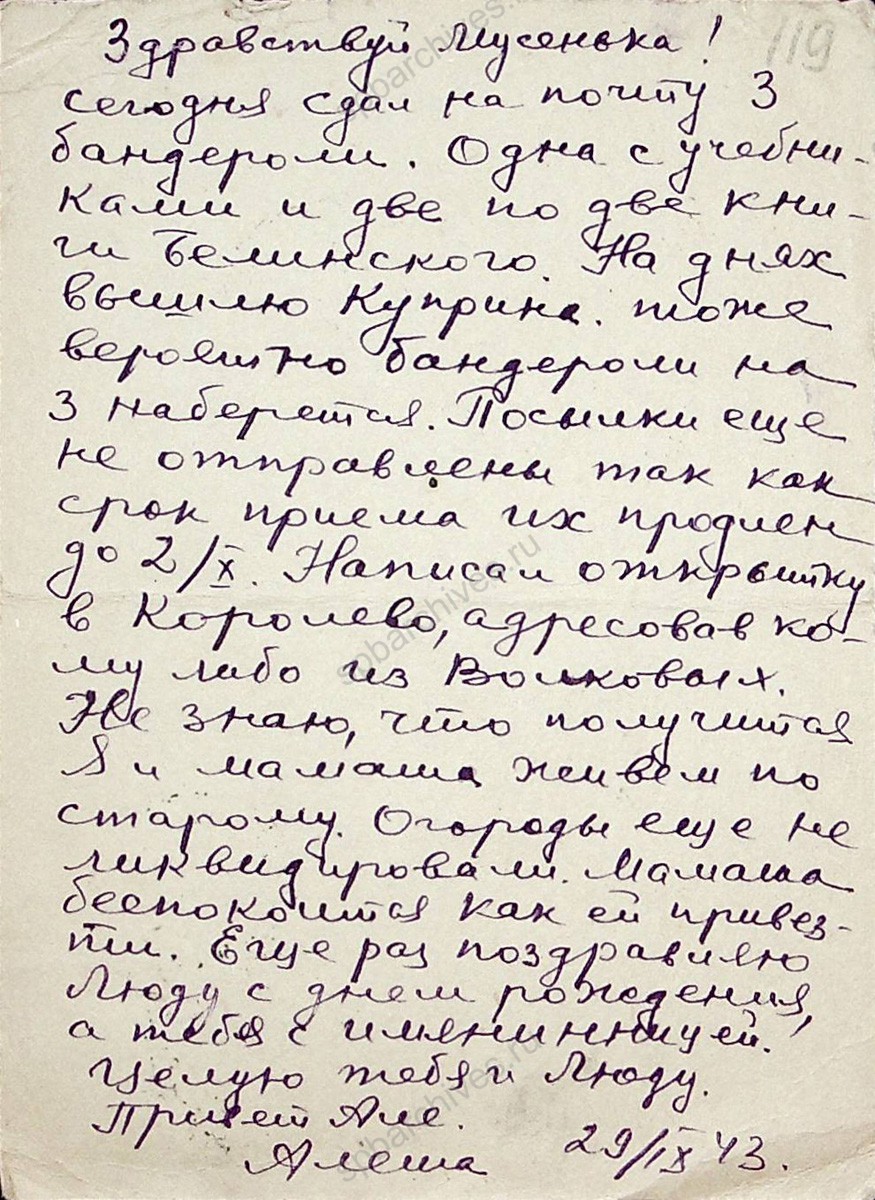 119
Здравствуй Мусенька!
сегодня сдал на почту 3
бандероли. Одна с учебни-
ками и две по две кни-
ги Белинского. На днях
вышлю Куприна. тоже
вероятно бандероли на
3 наберется. Посылки еще
не отправлены так как
срок приема их продлен
до 2/X. Написал открытку
в Королево, адресовав ко-
му либо из Волковых.
Не знаю, что получится
Я и мамаша живем по
старому. Огороды еще не
ликвидировали. Мамаша
беспокоится как ей привез-
ти. Еще раз поздравляю
Люду с днем рождения,
а тебя с имянинницей!
Целую тебя и Люду.
Привет Але.
Алеша 29/IX 43.
spbarchives.ru
spbarchives.ru
spbarchives.ru